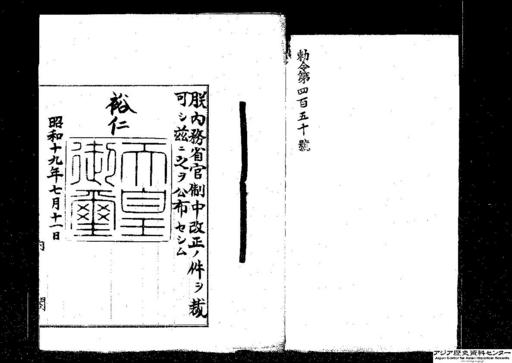 勅令第四百五十號
朕內務省官制中改正ノ件ヲ裁
可シ茲ニ之ヲ公布セシム
裕仁
天皇御璽
昭和十九年七月十一日
內閣
アジア歴史資料センター
Japan Center for Asian Historical Records